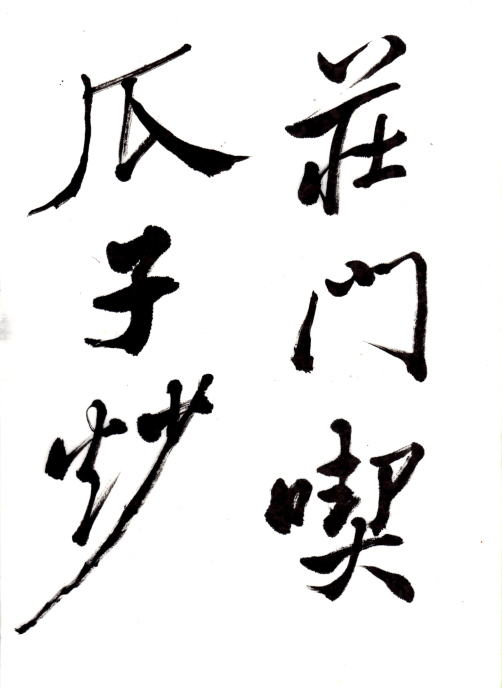 莊門喫
瓜子炒